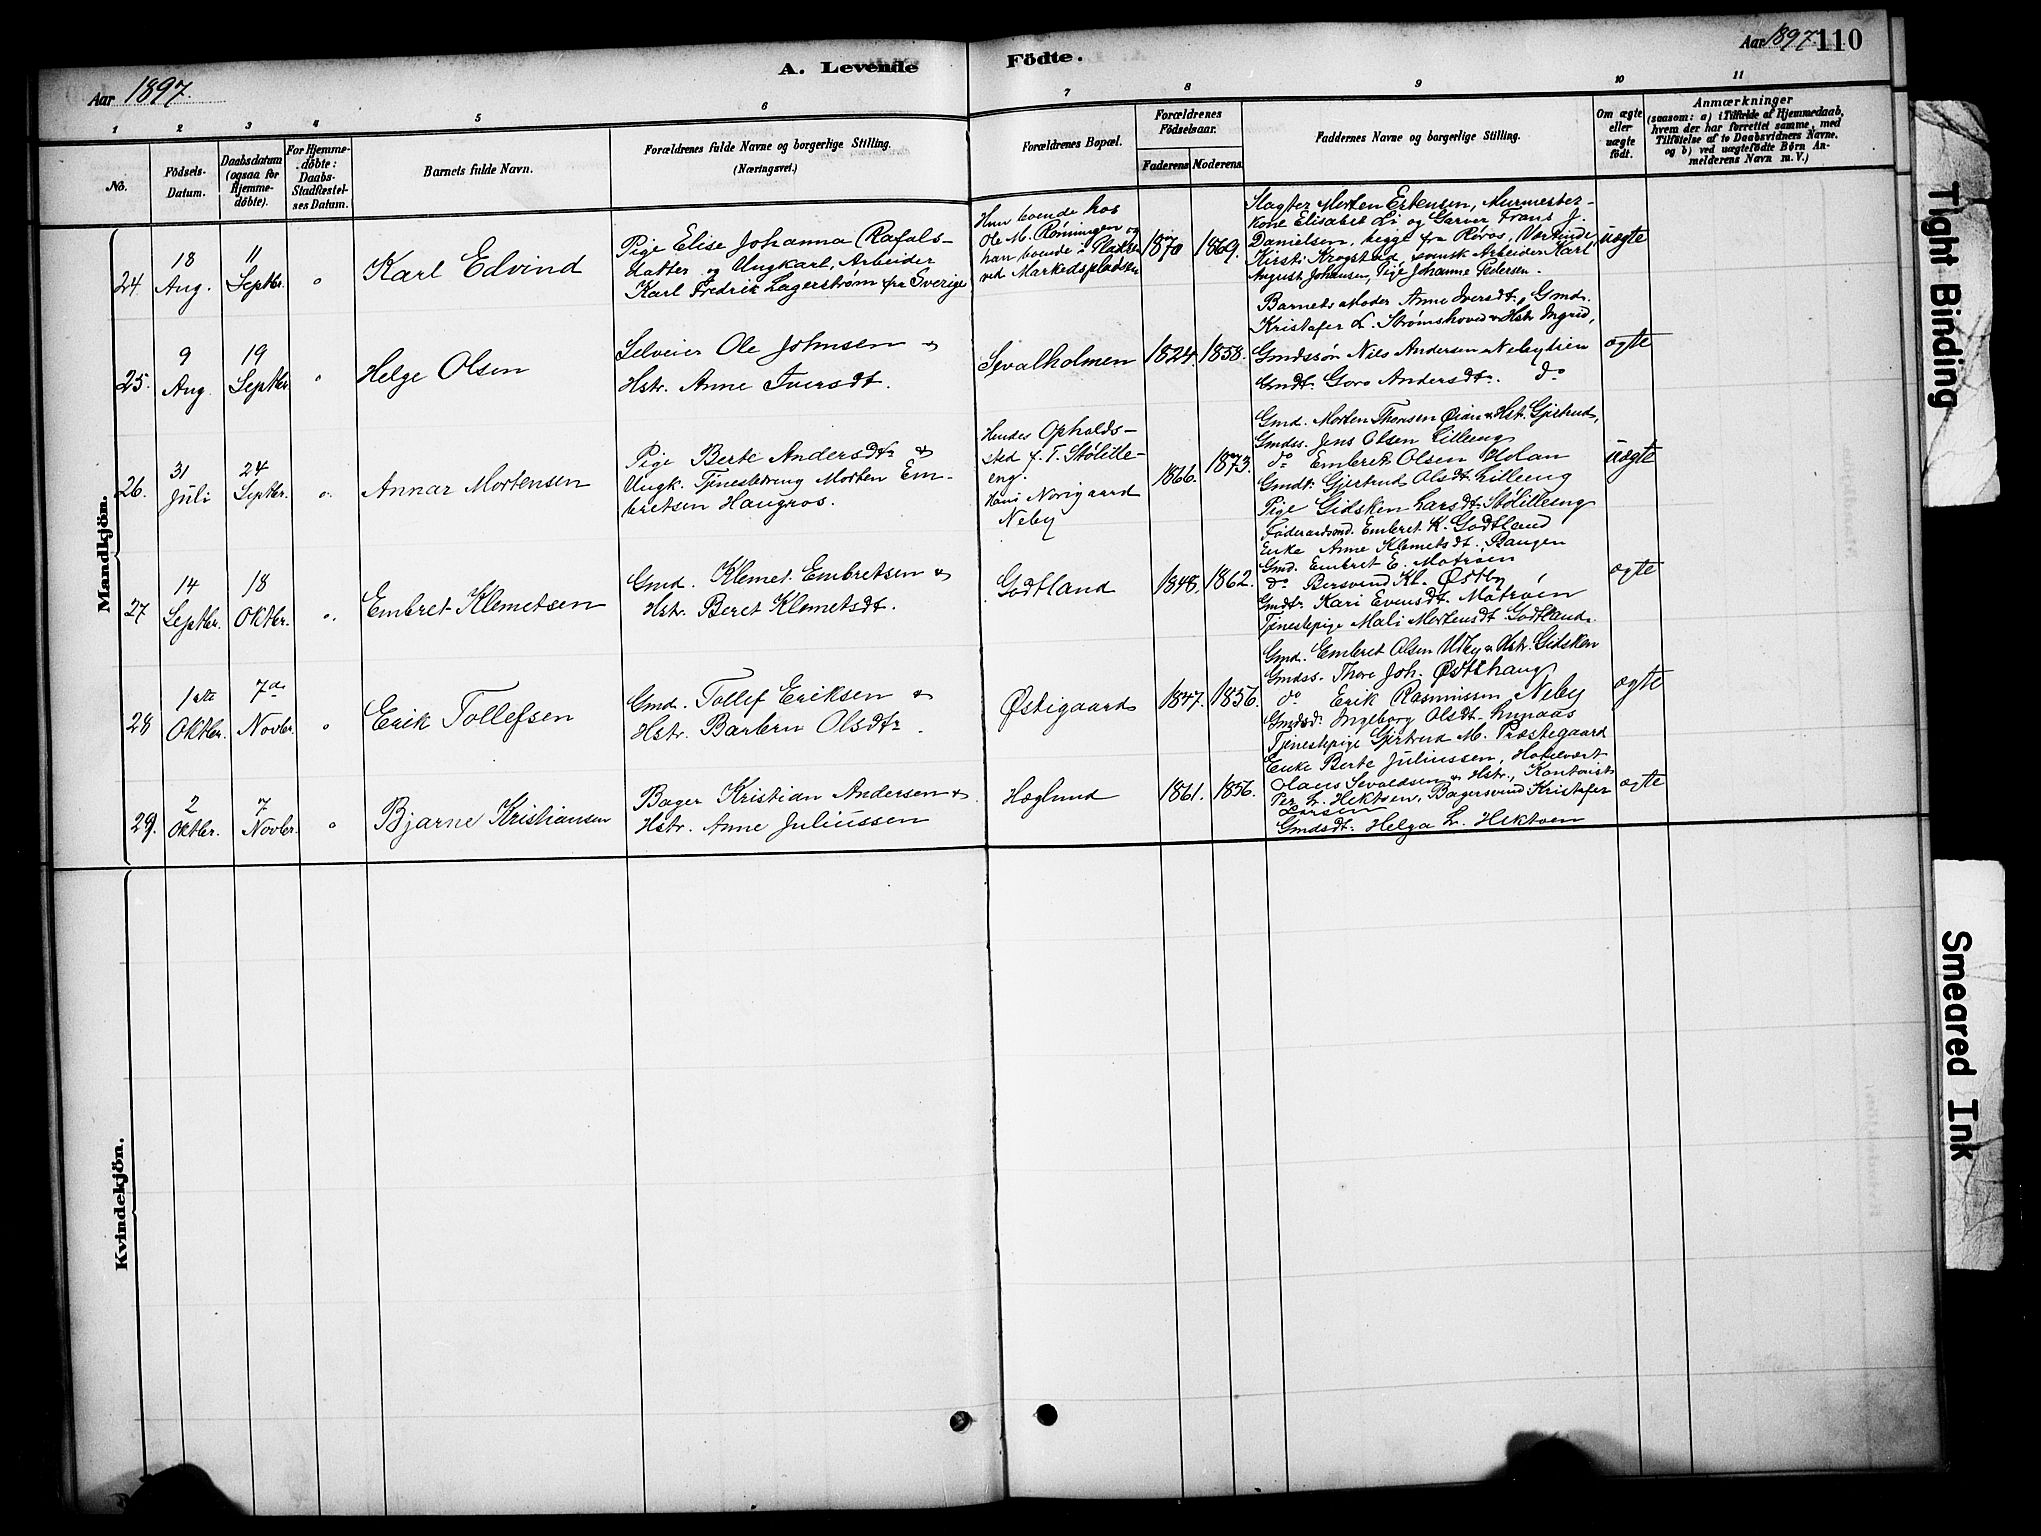 Aar 1897.
A. Levende
Födte.
Aar 1897 110
1 2 3 4 5 6 7 8 9 10 11
No.
Födsels-
Datum.
Daabsdatum
(ogsaa for
Hjemme-
döbte).
For Hjemme-
döbte:
Daabs-
Stadfæstel-
ses Datum.
Barnets fulde Navn.
Forældrenes fulde Navne og borgerlige Stilling.
(Næringsvei.)
Forældrenes Bopæl.
Forældrenes
Födselsaar.
Faderens Moderens.
Faddernes Navne og borgerlige Stilling.
Om ægte
eller
uægte
födt.
Anmærkninger
(saasom: a) i Tilfælde af Hjemmedaab,
hvem der har forrettet samme, med
Tilföielse af to Daabsvidners Navne.
og b) ved uægtefödte Börn An-
melderens Navn m. V.)
Mandkjön.
24
18
Aug.
11
Septbr.
"
Karl Edvind
Pige Elise Johanna Rafals-
datter og Ungkarl, Arbeider
Karl Fredrik Lagerstrøm fra Sverige
Hun boende hos
Ole M. Rønningen og
han boende i
ved Markedspladsen
1870
1869.
Slagter Morten Estensen, Murmester-
kone Elisabet Li og Garver Frans J.
Danielsen, begge fra Røros, Værtinde
Kirsti Krogstad, svensk Arbeider Karl
August Johansen, Pige Johanne Pedersen.
uægte
25.
9
Aug.
19
Septbr
"
Helge Olsen
Selveier Ole Johnsen &
Hstr. Anne Iversdt.
Sevalholmen
1824.
1858.
Barnets Moder Anne Iversdt, Gmd.
Kristafer L. Strømshoved & Hstr Ingrid,
Gmdssøn Nils Andersen Nebylien
Gmdt. Goro Andersdtr. do
ægte
26.
31
Juli
24
Septbr.
"
Annar Mortensen
Pige Berte Andersdtr &
Ungk. Tjenestedreng Morten Em-
bretsen Haugros.
Hendes Opholds-
sted p. T. Stølille-
eng.
Hans Norigaard
Neby
1866.
1873.
Gmd. Morten Thorsen Øian & Hstr. Gjertrud,
Gmdss. Jens Olsen Lilleeng
do Embret Olsen Holan
Gmdt. Gjertrud Olsdt Lilleeng
Pige Gidsken Larsdt. Stølilleeng
uægte
27
14
Septbr.
18
Oktbr.
"
Embret Klemetsen
Gmd. Klemet Embretsen &
Hstr. Beret Klemetsdt.
Godtland
1848.
1862.
Føderaadsmd. Embret K. Godtland
Enke Anne Klemetsdt. Bangen
Gmd. Embret E. Motrøen
do Bersvend Kl. Østby
Gmdtr Kari Evensdt. Motrøen
Tjenestepige Mali Mortensdt Godtland.
ægte
28
1ste
Oktbr.
7de
Novbr.
"
Erik Tollefsen
Gmd. Tollef Eriksen &
Hstr. Barbern Olsdtr.
Østigaard
1847.
1856.
Gmd. Embret Olsen Utby & Hstr. Gidsken
Gmdss. Thore Joh. Østlihaug
do Erik Rasmussen Neby
Gmdsd. Ingeborg Olsdt. Lunaas
Tjenestepige Gjertrud M. Præstegaard
ægte
29.
2
Oktbr.
7
Novbr.
"
Bjarne Kristiansen
Bager Kristian Andersen &
Hstr. Anne Juliussen
Høglund
1861.
1856.
Enke Berte Juliussen, Hotelvært
Olaus Sevaldsen & Hstr., Kontorist
Per L. Hektoen, Bagersvend Kristafer
Larsen
Gmdsdt. Helga L. Hektoen
ægte
Kvindekjön.
Tight Binding
Smeared Ink